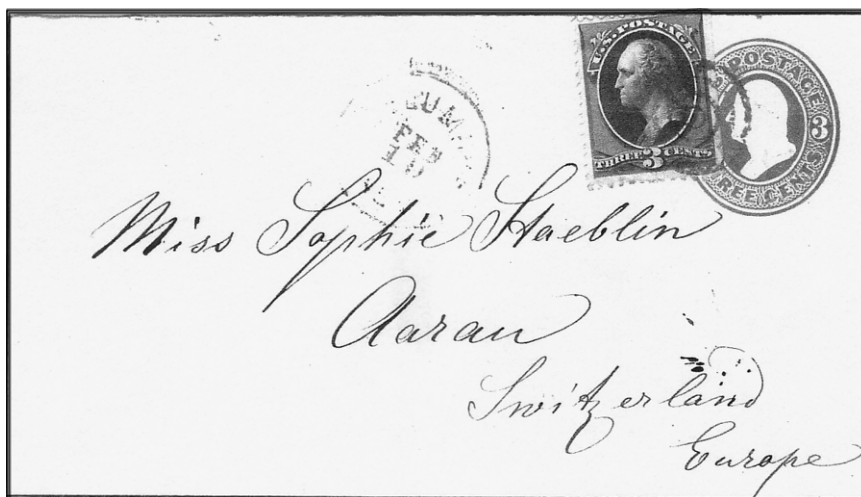 U.S. POSTAGE
THREE 3 CENTS
POSTAGE
3
REE CENTS
FEB
Miss Sophie Staeblin
Aarau
Switzerland
Europe